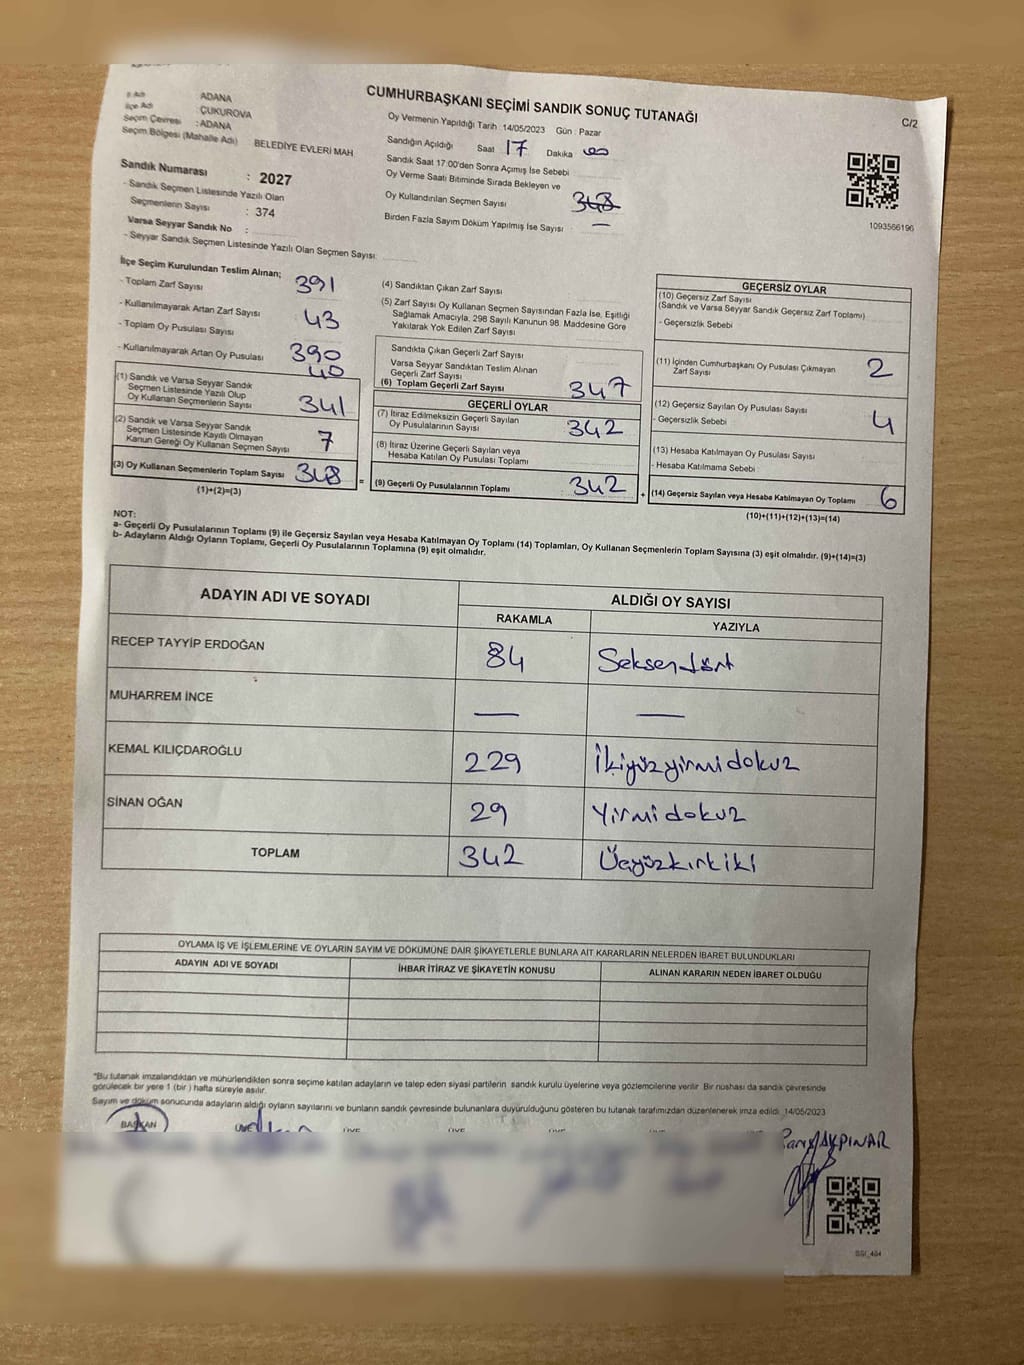 CUMHURBAŞKANI SEÇİMİ SANDIK SONUÇ TUTANAĞI
C/2
İl Adı : ADANA
İlçe Adı : ÇUKUROVA
Seçim Çevresi : ADANA
Seçim Bölgesi (Mahalle Adı) BELEDİYE EVLERİ MAH
Sandık Numarası : 2027
- Sandık Seçmen Listesinde Yazılı Olan
Seçmenlerin Sayısı : 374
Varsa Seyyar Sandık No :
- Seyyar Sandık Seçmen Listesinde Yazılı Olan Seçmen Sayısı:
Oy Vermenin Yapıldığı Tarih : 14/05/2023 Gün : Pazar
Sandığın Açıldığı Saat 17 Dakika 00
Sandık Saat 17:00'den Sonra Açımış İse Sebebi
Oy Verme Saati Bitiminde Sırada Bekleyen ve
Oy Kullandırılan Seçmen Sayısı 348
Birden Fazla Sayım Döküm Yapılmış İse Sayısı : —
1093566196
İlçe Seçim Kurulundan Teslim Alınan;
- Toplam Zarf Sayısı 391
- Kullanılmayarak Artan Zarf Sayısı 43
- Toplam Oy Pusulası Sayısı 390
- Kullanılmayarak Artan Oy Pusulası 40
(1) Sandık ve Varsa Seyyar Sandık
Seçmen Listesinde Yazılı Olup
Oy Kullanan Seçmenlerin Sayısı 341
(2) Sandık ve Varsa Seyyar Sandık
Seçmen Listesinde Kayıtlı Olmayan
Kanun Gereği Oy Kullanan Seçmen Sayısı 7
(3) Oy Kullanan Seçmenlerin Toplam Sayısı 348
(1)+(2)=(3)
(4) Sandıktan Çıkan Zarf Sayısı
(5) Zarf Sayısı Oy Kullanan Seçmen Sayısından Fazla İse, Eşitliği
Sağlamak Amacıyla, 298 Sayılı Kanunun 98. Maddesine Göre
Yakılarak Yok Edilen Zarf Sayısı
Sandıkta Çıkan Geçerli Zarf Sayısı
Varsa Seyyar Sandıktan Teslim Alınan
Geçerli Zarf Sayısı
(6) Toplam Geçerli Zarf Sayısı 347
GEÇERLİ OYLAR
(7) İtiraz Edilmeksizin Geçerli Sayılan
Oy Pusulalarının Sayısı 342
(8) İtiraz Üzerine Geçerli Sayılan veya
Hesaba Katılan Oy Pusulası Toplamı
= (9) Geçerli Oy Pusulalarının Toplamı 342
GEÇERSİZ OYLAR
(10) Geçersiz Zarf Sayısı
(Sandık ve Varsa Seyyar Sandık Geçersiz Zarf Toplamı)
- Geçersizlik Sebebi
(11) İçinden Cumhurbaşkanı Oy Pusulası Çıkmayan
Zarf Sayısı 2
(12) Geçersiz Sayılan Oy Pusulası Sayısı
- Geçersizlik Sebebi 4
(13) Hesaba Katılmayan Oy Pusulası Sayısı
- Hesaba Katılmama Sebebi
+ (14) Geçersiz Sayılan veya Hesaba Katılmayan Oy Toplamı 6
(10)+(11)+(12)+(13)=(14)
NOT:
a- Geçerli Oy Pusulalarının Toplamı (9) ile Geçersiz Sayılan veya Hesaba Katılmayan Oy Toplamı (14) Toplamları, Oy Kullanan Seçmenlerin Toplam Sayısına (3) eşit olmalıdır. (9)+(14)=(3)
b- Adayların Aldığı Oyların Toplamı, Geçerli Oy Pusulalarının Toplamına (9) eşit olmalıdır.
ADAYIN ADI VE SOYADI ALDIĞI OY SAYISI
RAKAMLA YAZIYLA
RECEP TAYYİP ERDOĞAN 84 Seksendört
MUHARREM İNCE — —
KEMAL KILIÇDAROĞLU 229 İkiyüzyirmidokuz
SİNAN OĞAN 29 Yirmidokuz
TOPLAM 342 Üçyüzkırkiki
OYLAMA İŞ VE İŞLEMLERİNE VE OYLARIN SAYIM VE DÖKÜMÜNE DAİR ŞİKAYETLERLE BUNLARA AİT KARARLARIN NELERDEN İBARET BULUNDUKLARI
ADAYIN ADI VE SOYADI İHBAR İTİRAZ VE ŞİKAYETİN KONUSU ALINAN KARARIN NEDEN İBARET OLDUĞU
*Bu tutanak imzalandıktan ve mühürlendikten sonra seçime katılan adayların ve talep eden siyasi partilerin sandık kurulu üyelerine veya gözlemcilerine verilir. Bir nüshası da sandık çevresinde
görülecek bir yere 1 (bir ) hafta süreyle asılır.
Sayım ve döküm sonucunda adayların aldığı oyların sayılarını ve bunların sandık çevresinde bulunanlara duyurulduğunu gösteren bu tutanak tarafımızdan düzenlenerek imza edildi. 14/05/2023
BAŞKAN ÜYE ÜYE ÜYE ÜYE ÜYE
AKPINAR